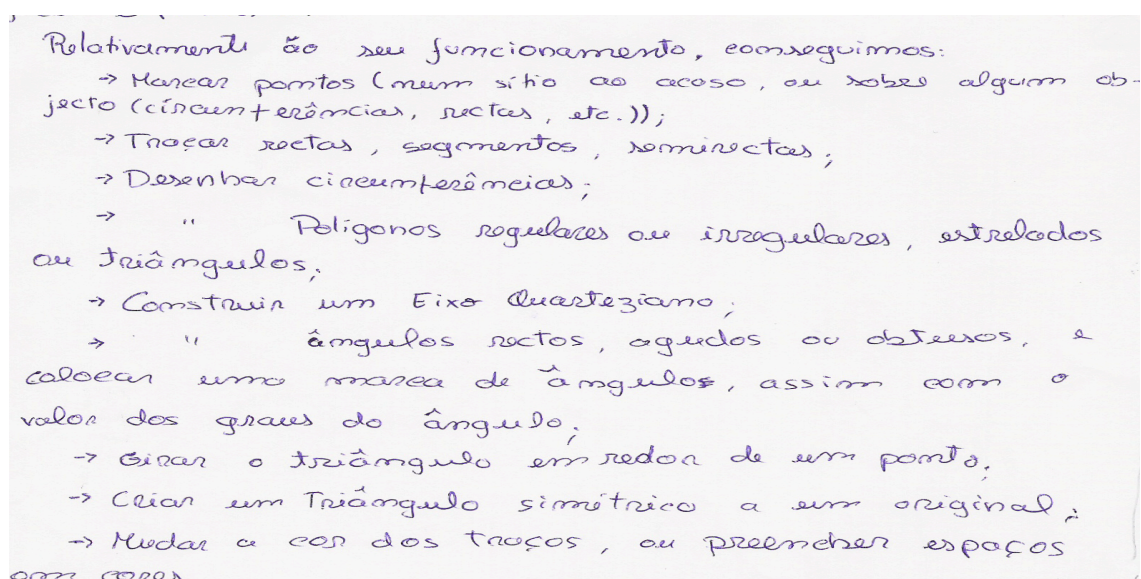 Relativamente ão seu funcionamento, conseguimos:
→ Marcar pontos (num sítio ao acaso, ou sobre algum ob-
jecto (circunferências, rectas, etc.));
→ Traçar rectas, segmentos, semirectas;
→ Desenhar circumferências;
→ " Polígonos regulares ou irregulares, estrelados
ou triângulos;
→ Construir um Eixo Quarteziano;
→ " ângulos rectos, agudos ou obtusos, e
colocar uma marca de ângulos, assim com o
valor dos graus do ângulo;
→ Girar o triângulo em redor de um ponto;
→ Criar um Triângulo simétrico a um original;
→ Mudar a cor dos traços, ou preencher espaços
com cores